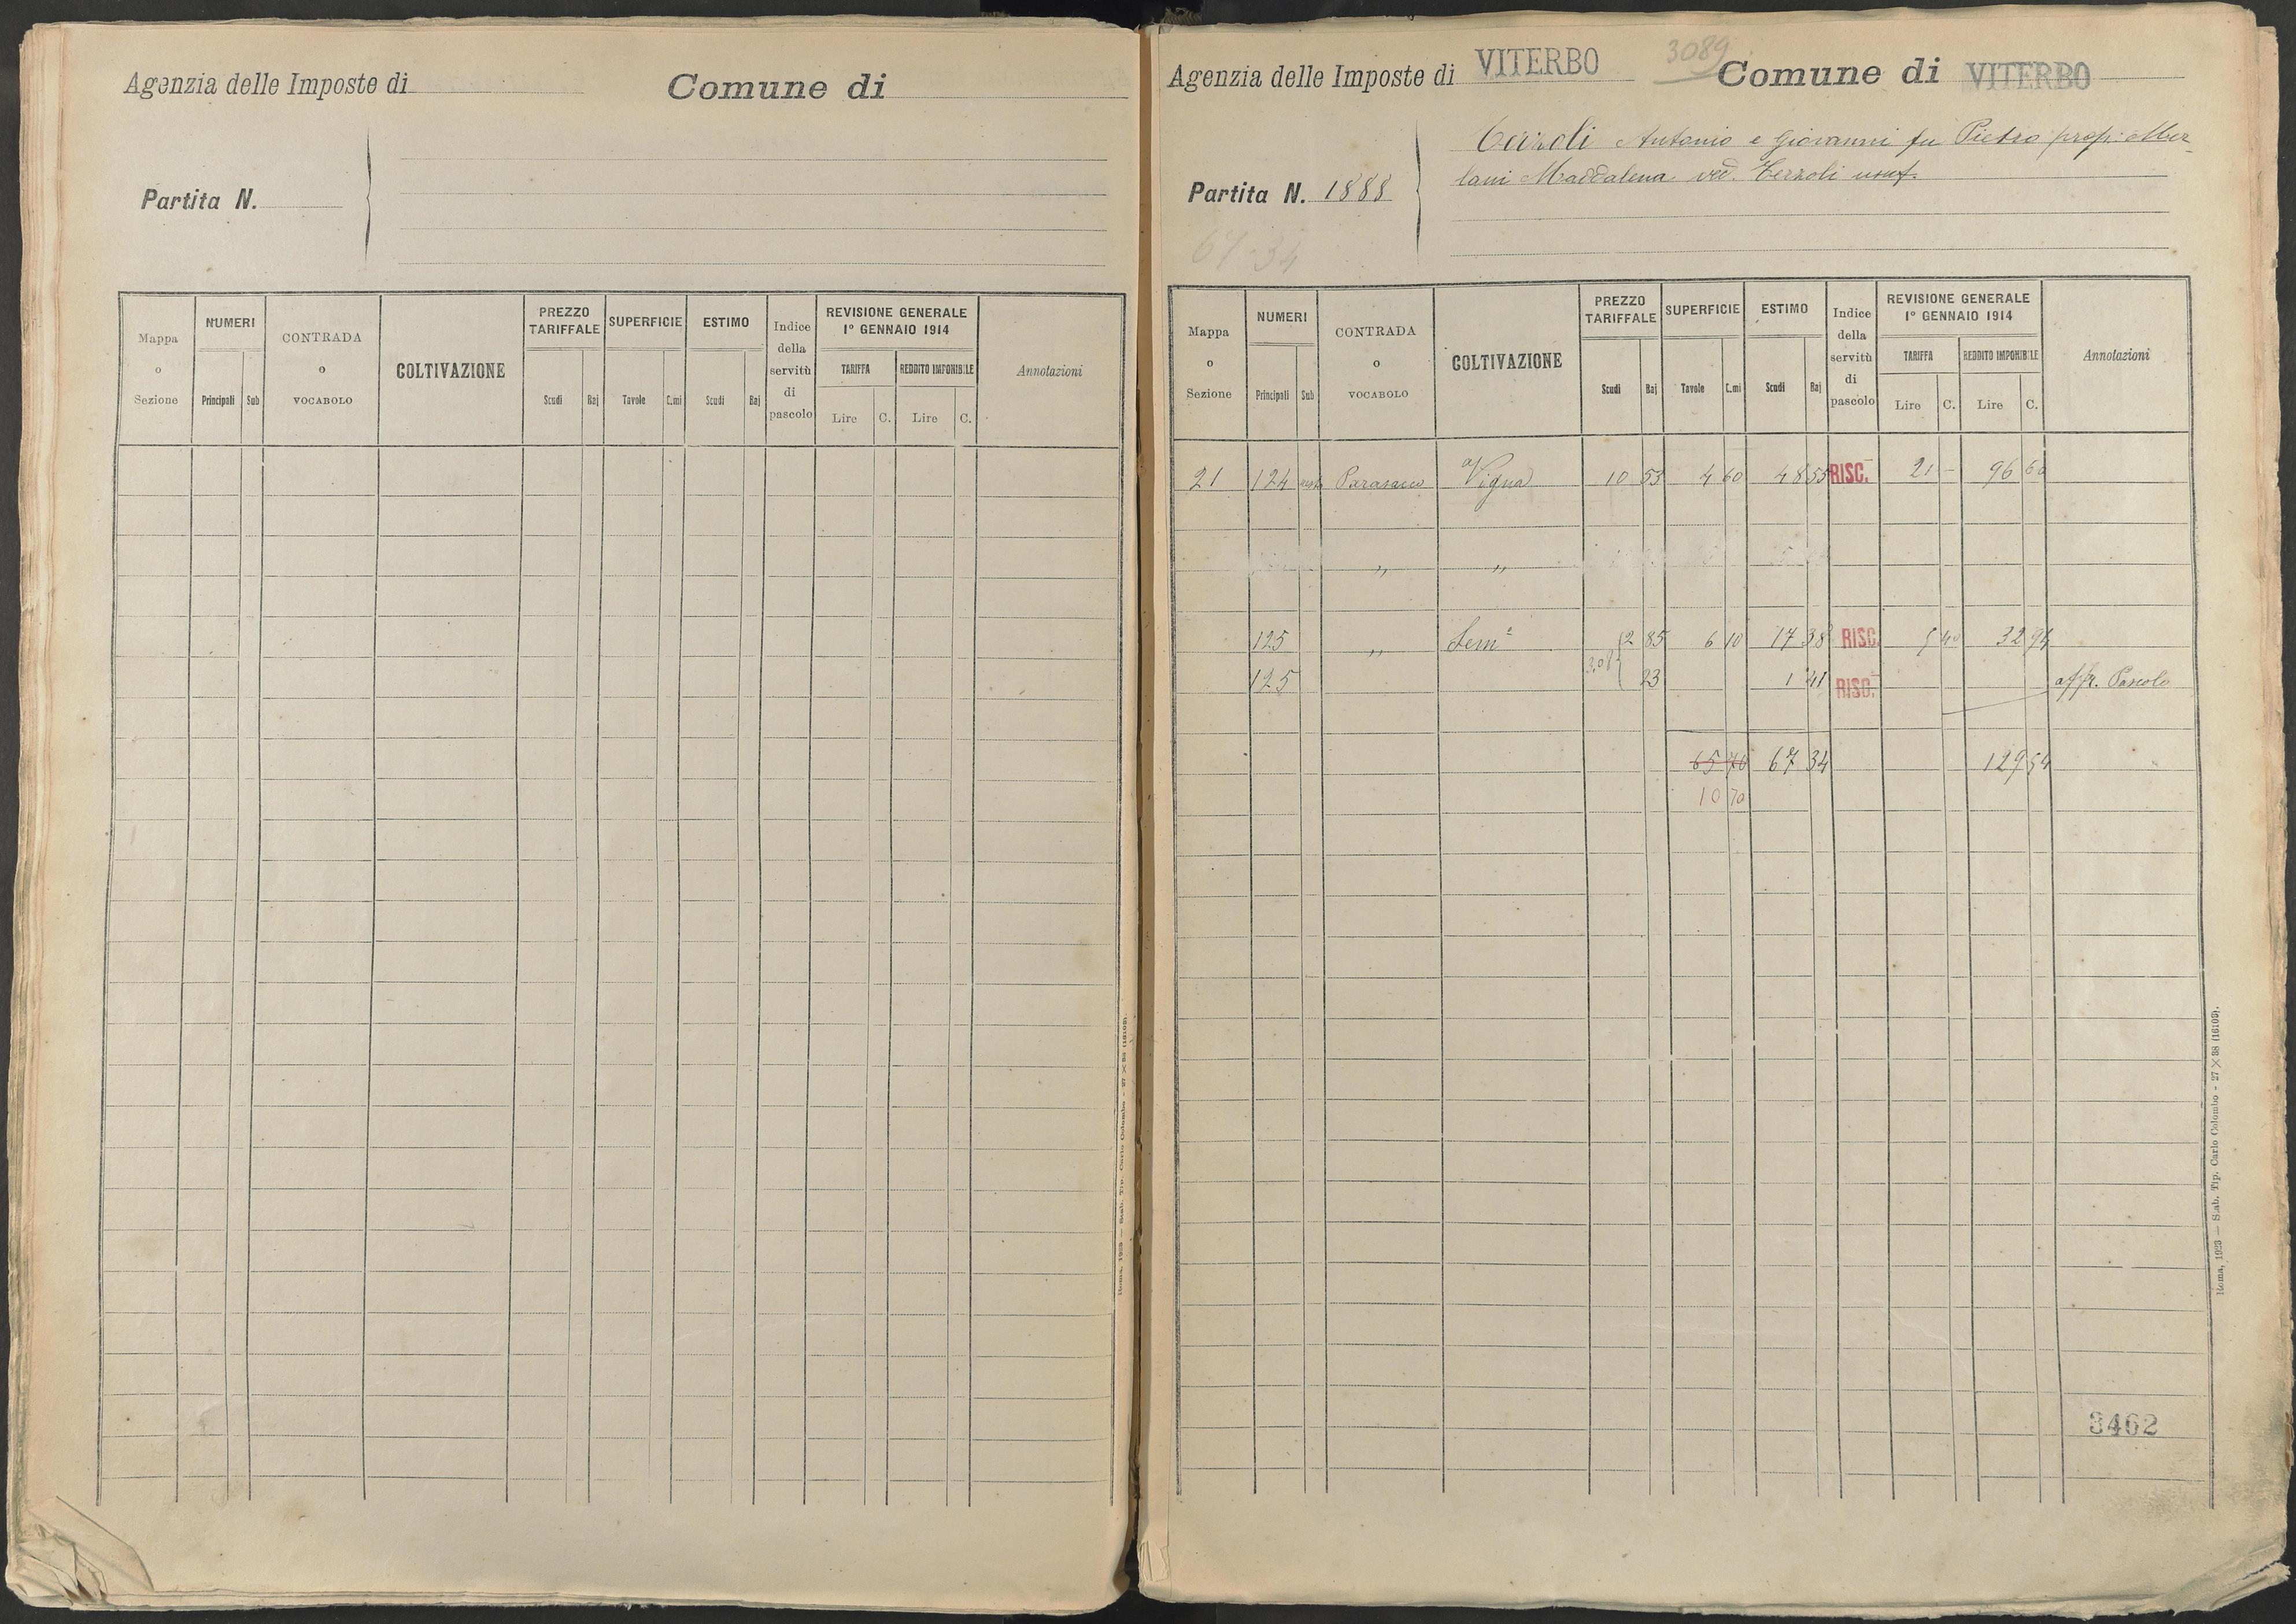 Agenzia delle Imposte di
Comune di
Partita N.
Mappa o Sezione
NUMERI
Principali Sub
CONTRADA o VOCABOLO
COLTIVAZIONE
PREZZO TARIFFALE
Scudi Baj
SUPERFICIE
Tavole C.mi
ESTIMO
Scudi Baj
Indice della servitù di pascolo
REVISIONE GENERALE
1º GENNAIO 1914
TARIFFA
Lire C.
REDDITO IMPONIBILE
Lire C.
Annotazioni
Agenzia delle Imposte di VITERBO
3089
Comune di VITERBO
Partita N. 1888
Terzoli Antonio e Giovanni fu Pietro prop: Mer-
lani Maddalena ved. Terzoli usuf.
67-34
Mappa o Sezione
NUMERI
Principali Sub
CONTRADA o VOCABOLO
COLTIVAZIONE
PREZZO TARIFFALE
Scudi Baj
SUPERFICIE
Tavole C.mi
ESTIMO
Scudi Baj
Indice della servitù di pascolo
REVISIONE GENERALE
1º GENNAIO 1914
TARIFFA
Lire C.
REDDITO IMPONIBILE
Lire C.
Annotazioni
21 124 rest Parasacco Vigna 10 53 4 60 48 55 RISC. 21 – 96 60
" "
125 " Sem 2 85 6 10 17 38 RISC. 5 40 32 94
3.08
125 23 1 41 RISC. affr. Pascolo
65 70 67 34 129 54
10 70
3462
Roma, 1923 — Stab. Tip. Carlo Colombo - 27 × 38 (16108).